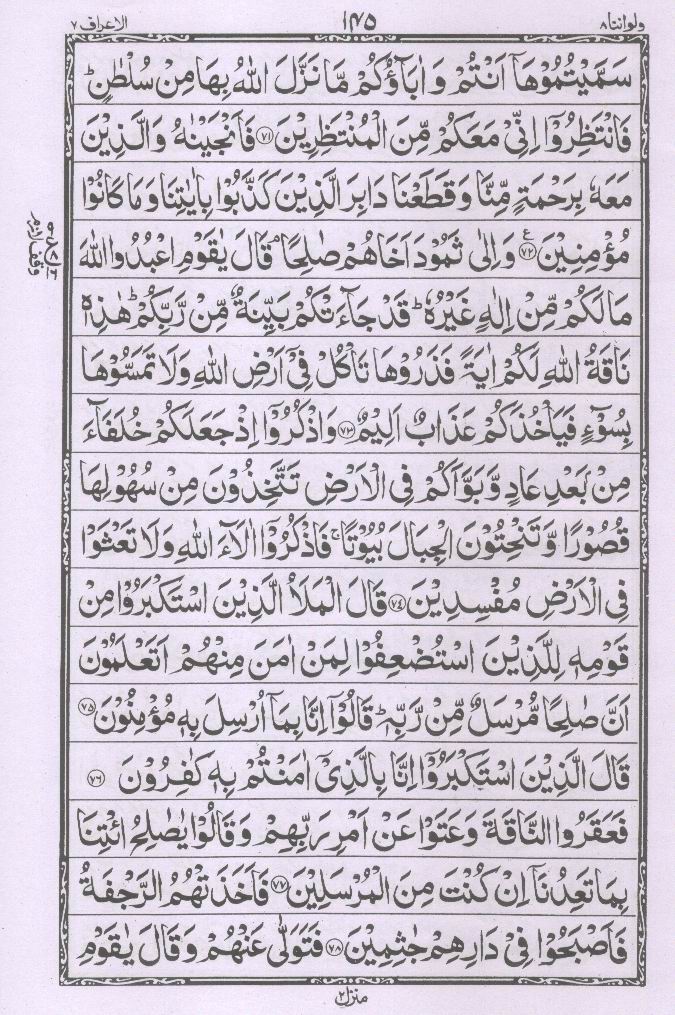 ولواننا ٨
١٤٥
الاعراف ٧
سَمَّيْتُمُوْهَآ اَنْتُمْ وَ اٰبَآؤُكُمْ مَّا نَزَّلَ اللّٰهُ بِهَا مِنْ سُلْطٰنٍ ؕ
فَانْتَظِرُوْۤا اِنِّیْ مَعَكُمْ مِّنَ الْمُنْتَظِرِیْنَ ﴿۷۱﴾ فَاَنْجَیْنٰهُ وَ الَّذِیْنَ
مَعَهٗ بِرَحْمَةٍ مِّنَّا وَ قَطَعْنَا دَابِرَ الَّذِیْنَ كَذَّبُوْا بِاٰیٰتِنَا وَ مَا كَانُوْا
مُؤْمِنِیْنَ ﴿۷۲﴾ ع وَ اِلٰی ثَمُوْدَ اَخَاهُمْ صٰلِحًا ۘ قَالَ یٰقَوْمِ اعْبُدُوا اللّٰهَ
مَا لَكُمْ مِّنْ اِلٰهٍ غَیْرُهٗ ؕ قَدْ جَآءَتْكُمْ بَیِّنَةٌ مِّنْ رَّبِّكُمْ ؕ هٰذِهٖ
نَاقَةُ اللّٰهِ لَكُمْ اٰیَةً فَذَرُوْهَا تَاْكُلْ فِیْۤ اَرْضِ اللّٰهِ وَ لَا تَمَسُّوْهَا
بِسُوْٓءٍ فَیَاْخُذَكُمْ عَذَابٌ اَلِیْمٌ ﴿۷۳﴾ وَ اذْكُرُوْۤا اِذْ جَعَلَكُمْ خُلَفَآءَ
مِنْ بَعْدِ عَادٍ وَّ بَوَّاَكُمْ فِی الْاَرْضِ تَتَّخِذُوْنَ مِنْ سُهُوْلِهَا
قُصُوْرًا وَّ تَنْحِتُوْنَ الْجِبَالَ بُیُوْتًا ۚ فَاذْكُرُوْۤا اٰلَآءَ اللّٰهِ وَ لَا تَعْثَوْا
فِی الْاَرْضِ مُفْسِدِیْنَ ﴿۷۴﴾ قَالَ الْمَلَاُ الَّذِیْنَ اسْتَكْبَرُوْا مِنْ
قَوْمِهٖ لِلَّذِیْنَ اسْتُضْعِفُوْا لِمَنْ اٰمَنَ مِنْهُمْ اَتَعْلَمُوْنَ
اَنَّ صٰلِحًا مُّرْسَلٌ مِّنْ رَّبِّهٖ ؕ قَالُوْۤا اِنَّا بِمَاۤ اُرْسِلَ بِهٖ مُؤْمِنُوْنَ ﴿۷۵﴾
قَالَ الَّذِیْنَ اسْتَكْبَرُوْۤا اِنَّا بِالَّذِیْۤ اٰمَنْتُمْ بِهٖ كٰفِرُوْنَ ﴿۷۶﴾
فَعَقَرُوا النَّاقَةَ وَ عَتَوْا عَنْ اَمْرِ رَبِّهِمْ وَ قَالُوْا یٰصٰلِحُ ائْتِنَا
بِمَا تَعِدُنَاۤ اِنْ كُنْتَ مِنَ الْمُرْسَلِیْنَ ﴿۷۷﴾ فَاَخَذَتْهُمُ الرَّجْفَةُ
فَاَصْبَحُوْا فِیْ دَارِهِمْ جٰثِمِیْنَ ﴿۷۸﴾ فَتَوَلّٰی عَنْهُمْ وَ قَالَ یٰقَوْمِ
منزل ٢